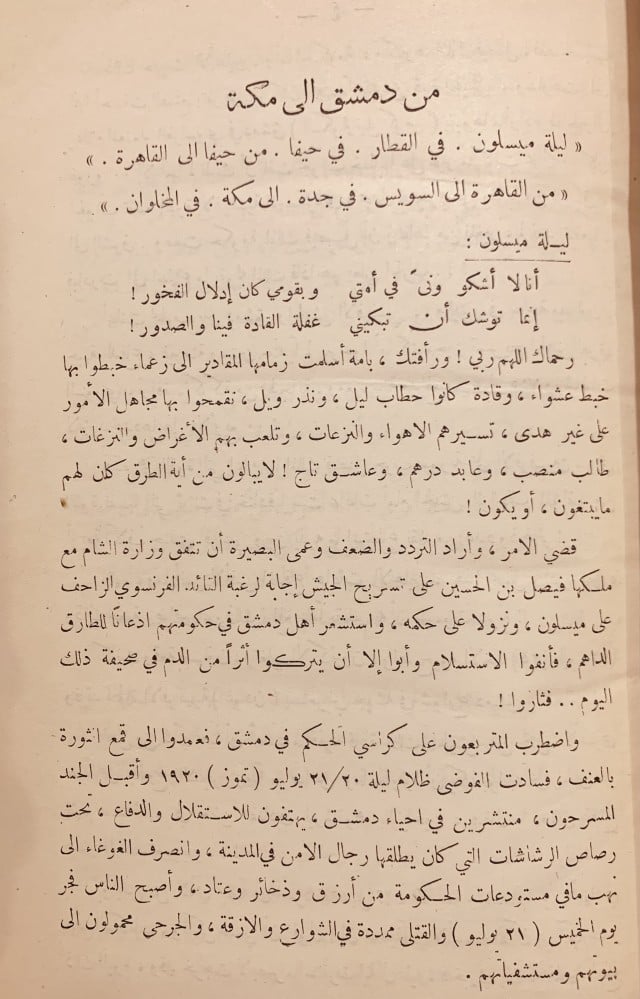 من دمشق الى مكة
« ليلة ميسلون . في القطار . في حيفا . من حيفا الى القاهرة . »
« من القاهرة الى السويس . في جدة . الى مكة . في المخلوان . »
ليلة ميسلون :
أنا لا أشكو ونىً في أمتي وبقومي كان إدلال الفخور !
إنما توشك أن تبكيني غفلة القادة فينا والصدور !
رحماك اللهم ربي ! ورأفتك ، بامة أسلمت زمامها المقادير الى زعماء خبطوا بها
خبط عشواء ، وقادة كانوا حطاب ليل ، ونذر ويل ، نقمحوا بها مجاهل الأمور
على غير هدى ، تسيرهم الاهواء والنزعات ، وتلعب بهم الأغراض والنزغات ،
طالب منصب ، وعابد درهم ، وعاشق تاج ! لايبالون من أية الطرق كان لهم
مايبتغون ، أو يكون !
قضي الامر ، وأراد التردد والضعف وعمى البصيرة أن تتفق وزارة الشام مع
ملكها فيصل بن الحسين على تسريح الجيش إجابة لرغبة القائد الفرنسوي الزاحف
على ميسلون ، ونزولا على حكمه ، واستشعر أهل دمشق في حكومتهم اذعاناً للطارق
الداهم ، فأنفوا الاستسلام وأبوا إلا أن يتركوا أثراً من الدم في صحيفة ذلك
اليوم .. فثاروا !
واضطرب المتربعون على كراسي الحكم في دمشق ، فعمدوا الى قمع الثورة
بالعنف ، فسادت الفوضى ظلام ليلة ٢١/٢٠ يوليو ( تموز ) ١٩٢٠ وأقبل الجند
المسرحون ، منتشرين في احياء دمشق ، يهتفون للاستقلال والدفاع ، تحت
رصاص الرشاشات التي كان يطلقها رجال الامن في المدينة ، وانصرف الغوغاء الى
نهب مافي مستودعات الحكومة من أرزق وذخائر وعتاد ، وأصبح الناس فجر
يوم الخميس ( ٢١ يوليو ) والقتلى ممددة في الشوارع والازقة ، والجرحى محمولون الى
بيوتهم ومستشفياتهم .